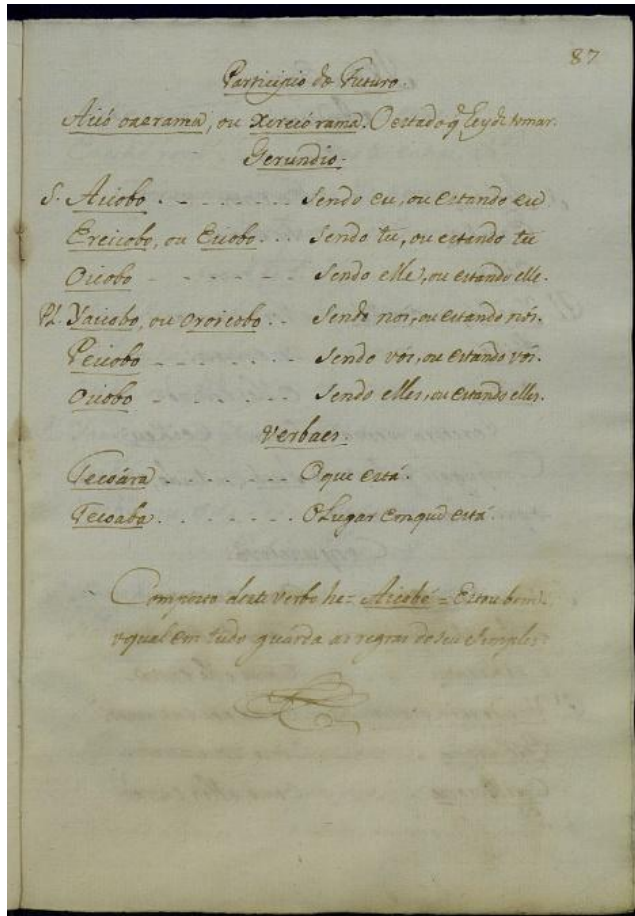 87
Participio de Futuro.
Aicó oaerama, ou Xerecó rama. O estado q̃ hey de tomar.
Gerundio.
S. Aicobo . - - - - - - Sendo eu, ou estando eu
Ereicobo, ou Eicobo . . . Sendo tu, ou estando tu
Oicobo - - - - - - - Sendo elle, ou estando elle.
Pl. Yaicobo, ou oroicobo . . Sendo nos, ou estando nós.
Peicobo . - - - - - - Sendo vós, ou estando vós.
Oicobo - - - - - - - Sendo elles, ou estando elles.
Verbaes.
Tecoára . - - - - - - O que está.
Tecoaba . - - - - - - O Lugar em que está.
Composto deste verbo he = Aicobé = Estou bom.
o qual em tudo guarda as regras de seu simples